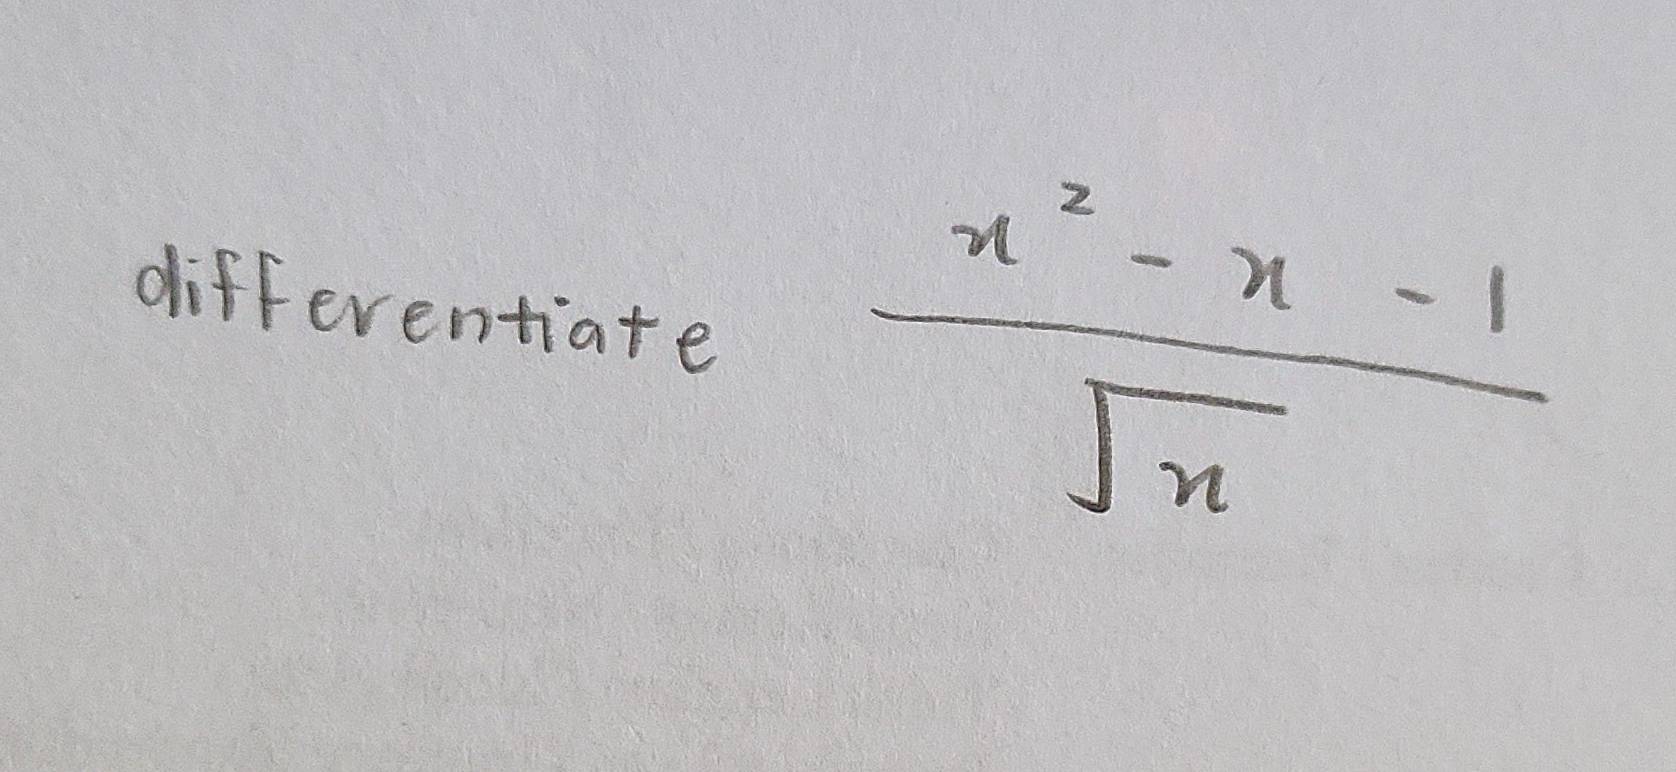 differentiate x² - x - 1 / √x